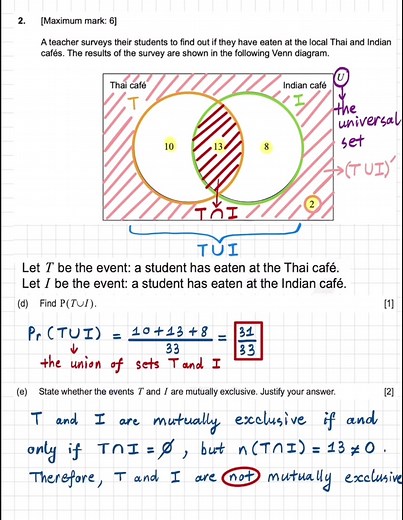 2. [Maximum mark: 6]
A teacher surveys their students to find out if they have eaten at the local Thai and Indian
cafés. The results of the survey are shown in the following Venn diagram.
Thai café Indian café U
T I the
universal
set
10 13 8
(T∪I)'
T∩I 2
T∪I
Let T be the event: a student has eaten at the Thai café.
Let I be the event: a student has eaten at the Indian café.
(d) Find P(T∪I). [1]
Pr(T∪I) = 10+13+8 / 33 = 31 / 33
the union of sets T and I
(e) State whether the events T and I are mutually exclusive. Justify your answer. [2]
T and I are mutually exclusive if and
only if T∩I = ∅, but n(T∩I) = 13 ≠ 0.
Therefore, T and I are not mutually exclusive